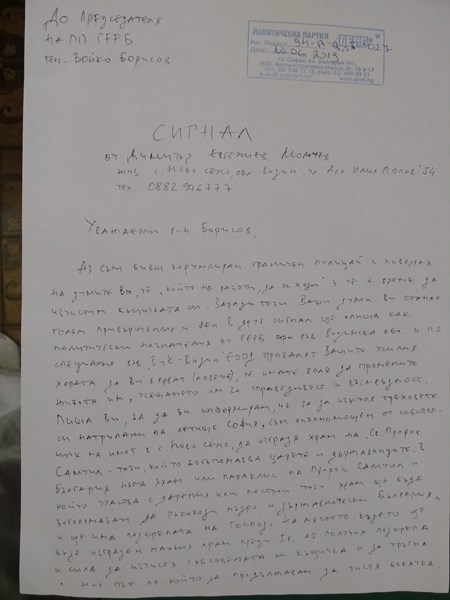 До Председателя
на ПП ГЕРБ
г-н. Бойко Борисов
ПОЛИТИЧЕСКА ПАРТИЯ
10.06.2019
СИГНАЛ
от Димитър Евгениев
жив. с. Ново село, общ. Видин, ул. Арх. Илия Попов 54
тел. 0882 976777
Уважаеми г-н Борисов,
Аз съм бивш корумпиран граничен полицай и повярвах
на думите Ви, че "който не работи, да си ходи" и че е време да
изчистим къщичката си. Заради тези Ваши думи Ви станах
голям привърженик и във друг сигнал ще опиша как
политически назначения от ГЕРБ във Видинска обл. и по
специално във "ВиК-Видин" ЕООД провалят Вашите усилия
хората да Ви вярват (повече), че имате воля да промените
живота им, усещането им за справедливост и възмездност.
Пиша Ви, за да Ви информирам, че за да изкупя греховете
си натрупани на летище София, съм упълномощен от собстве-
ник на имот в с. Ново село, да изградя храм на Св. Пророк
Самуил - този, който богопомазва царете и държавниците. В
България няма храм или параклис на Пророк Самуил и
който участва с дарения или посети този храм ще бъде
богопомазан да ръководи мъдро и държавнически България,
и ще има подкрепата на Господ. На мястото, където ще
бъде изграден нашия храм преди 5г. аз получих подкрепа
и сила да изчистя собствената си къщичка и да тръгна
по път по който да продължавам да чистя всичко.